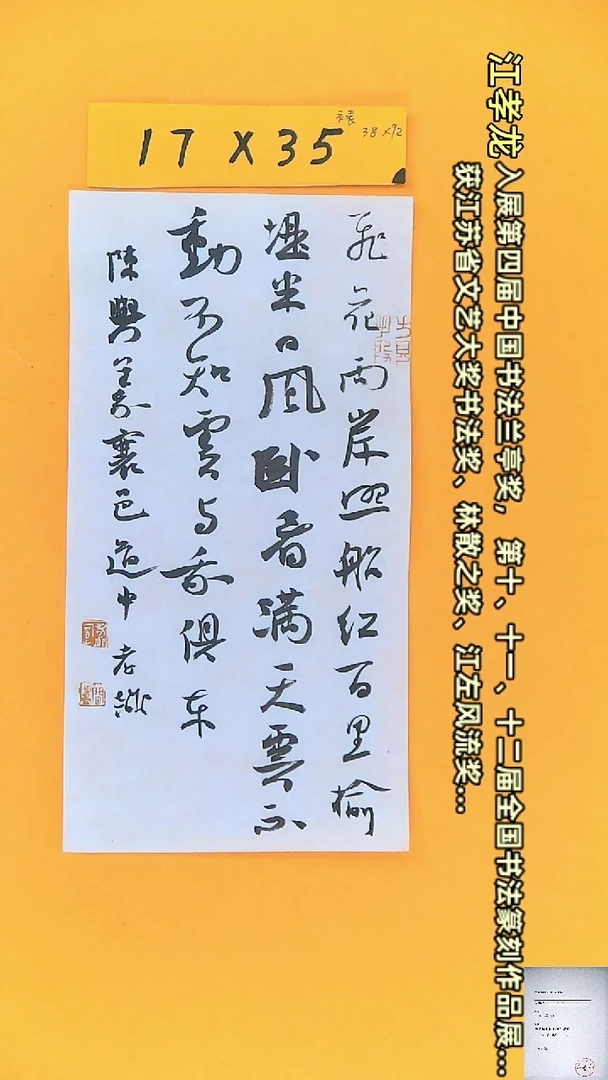 17 X 35
裱 38 X 72
飛花兩岸照船紅百里榆
堤半日風卧看满天雲不
動不知雲与我俱東
陳與義襄邑道中 孝龍
江孝龙 入展第四届中国书法兰亭奖，第十、十一、十二届全国书法篆刻作品展...
获江苏省文艺大奖书法奖、林散之奖、江左风流奖...